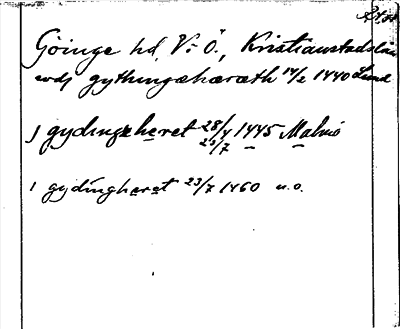 Göinge hd, V. Ö., Kristianstads län
wdj gythingæhæræth 14/2 1440 Lund
j gydingæheret 28/4 1445 Malmö
23/7
i gydingheret 23/7 1460 u.o.